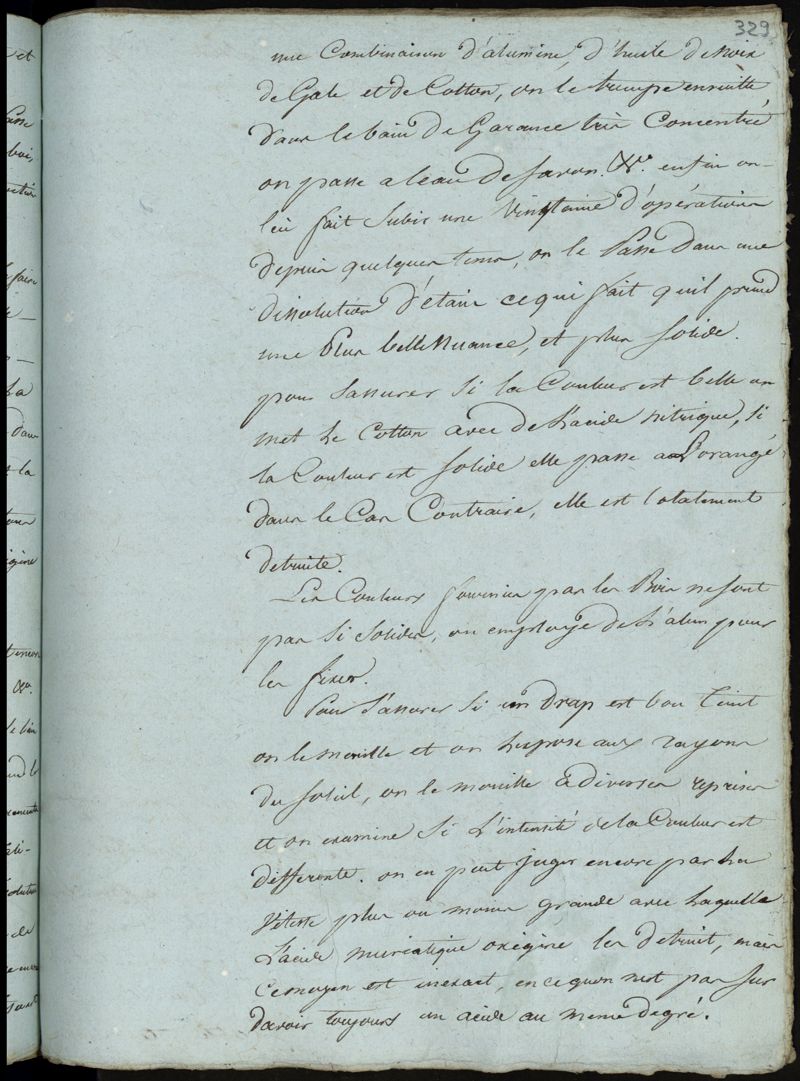 329
une Combinaison d'alumine, d'huile de Noix
de Gale et de Cotton, on le trempe ensuitte
dans le bain de Garance très Concentré
on passe a leau de Savon. &a. enfin on
lui fait Subir une Vingtaine d'opérations
depuis quelques tems, on le Passe dans une
dissolution d'étain ce qui fait qu'il prend
une Plus belle Nuance, et plus Solide.
pour Sassurer Si la Couleur est belle on
met le Cotton avec de L'acide nitrique, si
la Couleur est Solide elle passe a L'orangé
dans le Cas Contraire, elle est totalement
detruite.
Les Couleurs fournies par les Bois ne sont
pas Si Solides, on employe de L'alun pour
les fixer.
Pour S'assurer Si un Drap est bon teint
on le mouille et on Lexpose aux rayons
du Soleil, on le mouille à diverses reprises
et on examine Si L'intensité de la Couleur est
differente. on en peut juger encore par La
Vitesse plus ou moins grande avec Laquelle
L'acide muriatique oxigène les detruit, mais
Ce moyen est inexact, en ce quon nest pas Sur
d'avoir toujours un acide au meme degré.
et
Passe
bois
faire
La
dans
la
&a.
le bain